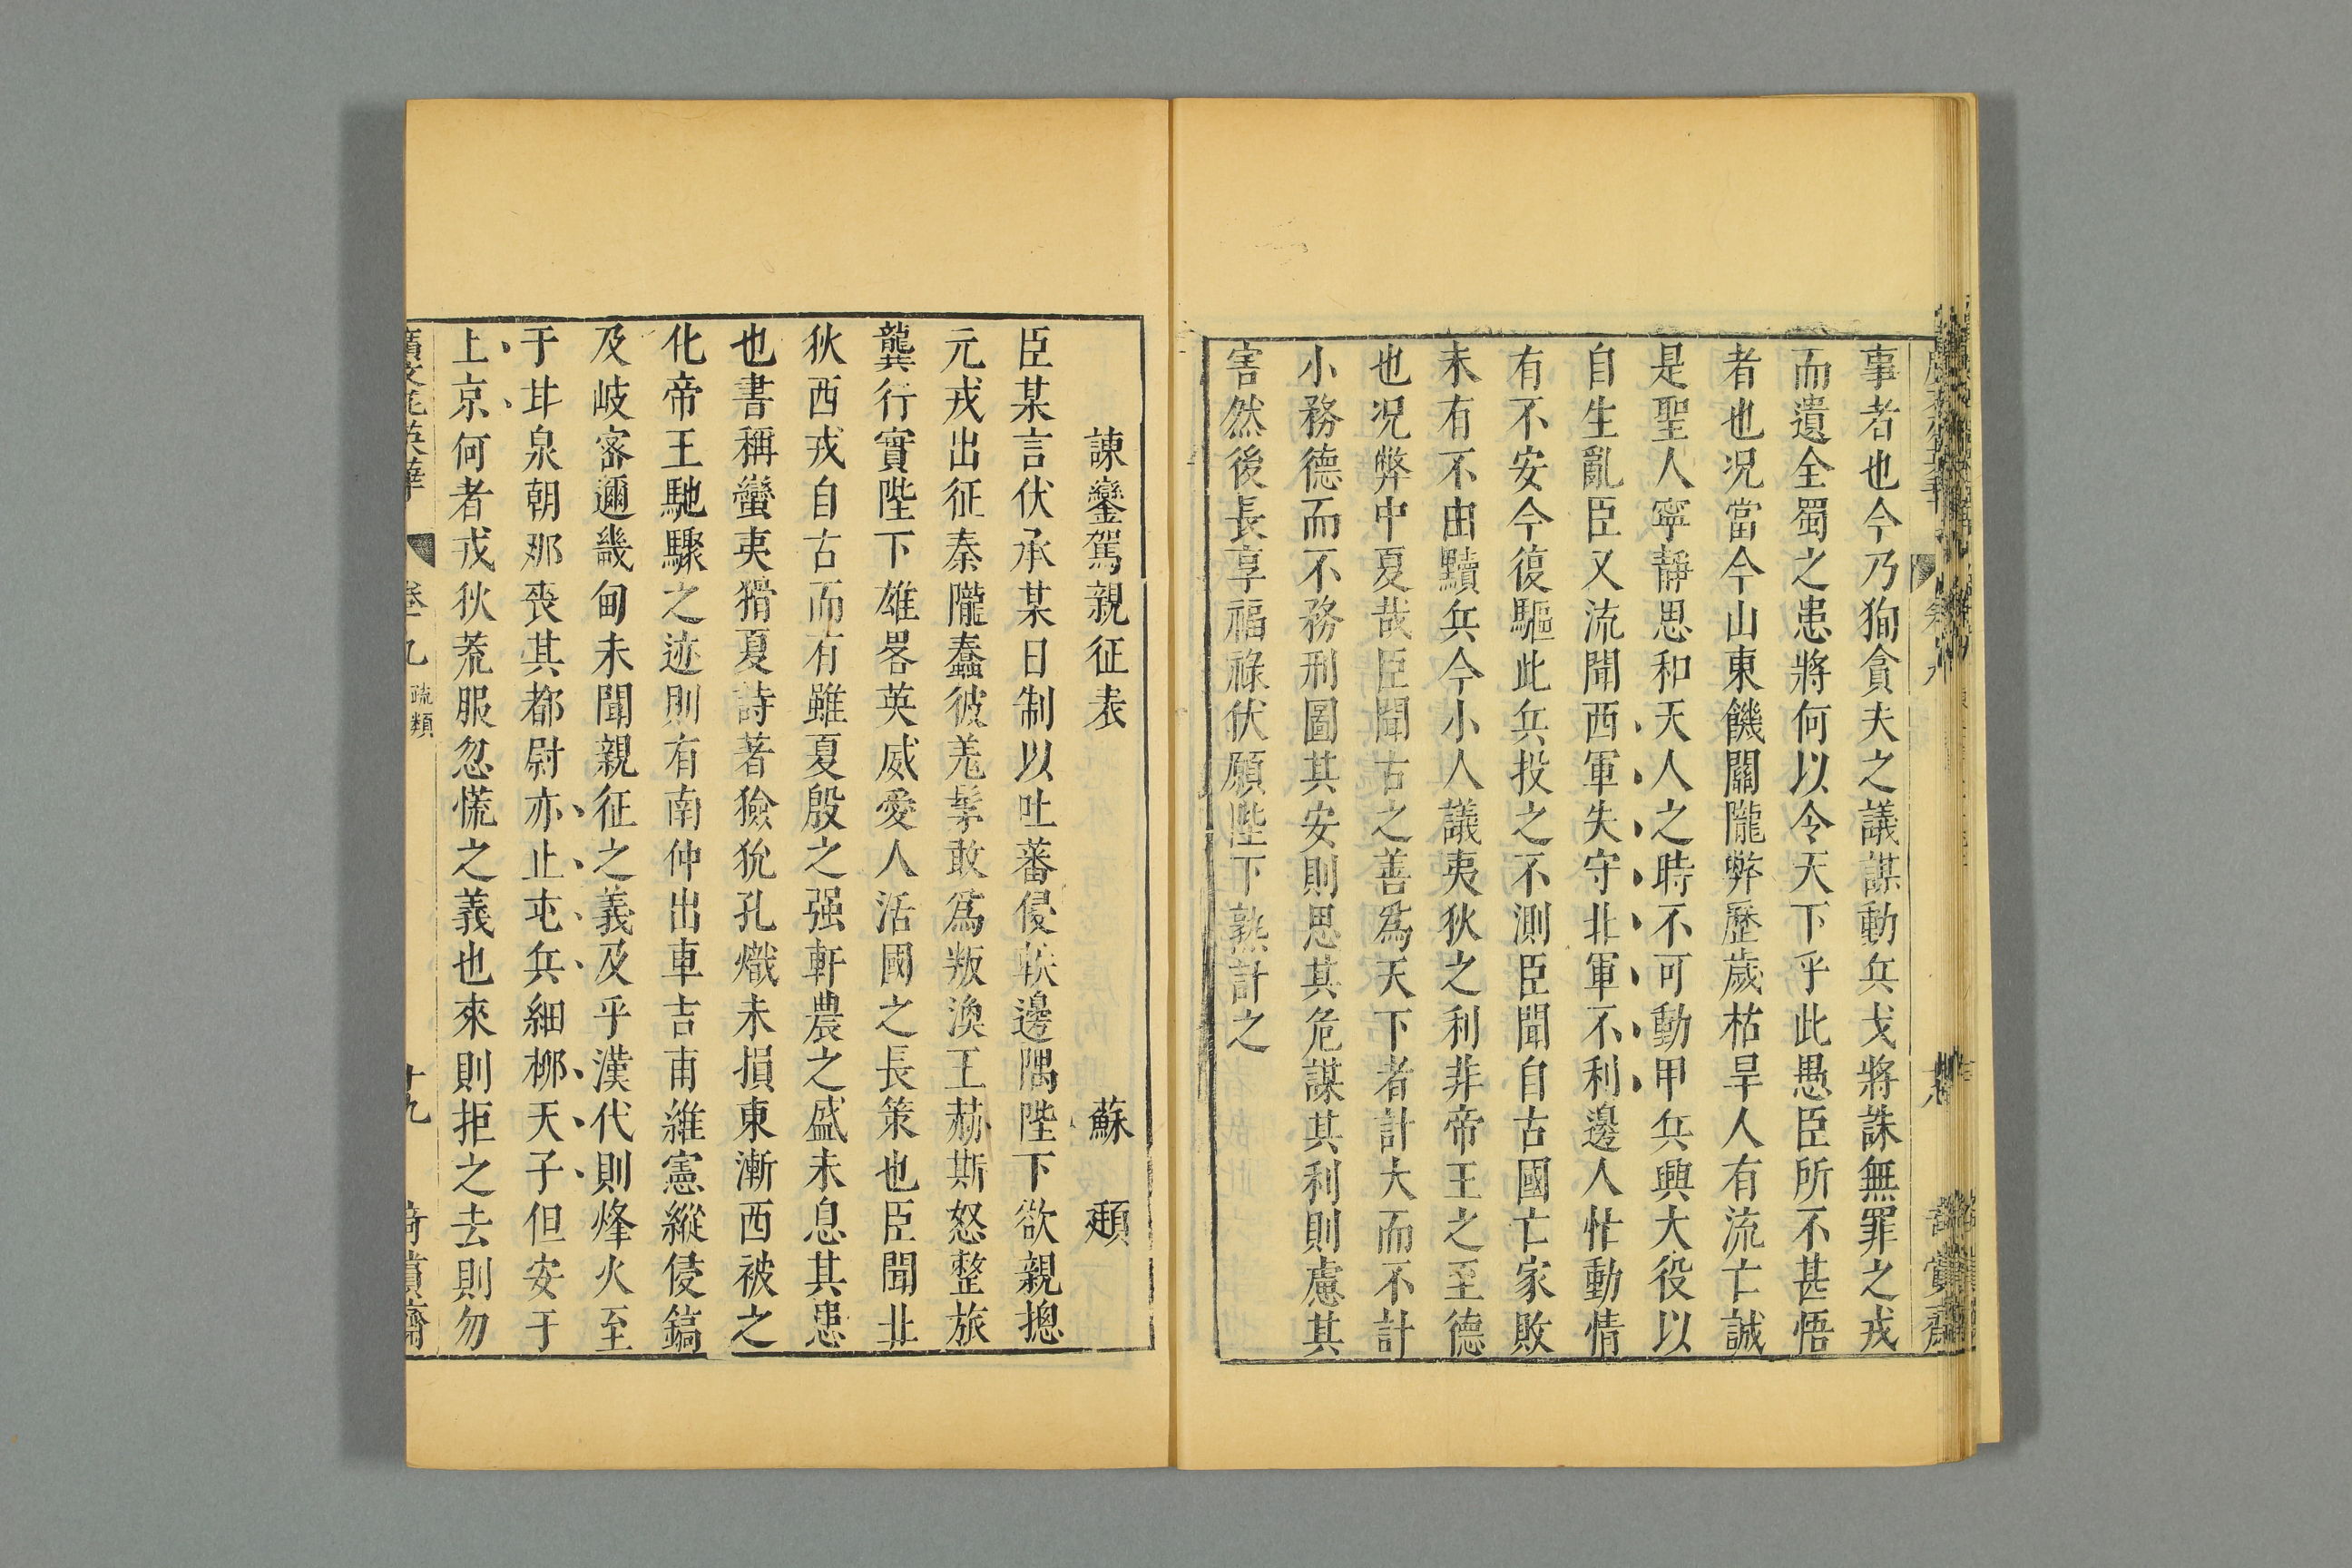 事者也今乃狥貪夫之議謀動兵戈將誅無罪之戎
而遺全蜀之患將何以令天下乎此愚臣所不甚悟
者也况當今山東饑關隴弊歷歲枯旱人有流亡誠
是聖人寧靜思和天人之時不可動甲兵興大役以
自生亂臣又流聞西軍失守北軍不利邊人忙動情
有不安今復驅此兵投之不測臣聞自古國亡家敗
未有不由黷兵今小人議夷狄之利非帝王之至德
也况弊中夏哉臣聞古之善爲天下者計大而不計
小務德而不務刑圖其安則思其危謀其利則慮其
害然後長享福祿伏願陛下熟計之
諫鑾駕親征表 蘇頲
臣某言伏承某日制以吐蕃侵軼邊隅陛下欲親摠
元戎出征秦隴蠢彼羗髳敢爲叛渙王赫斯怒整旅
龔行實陛下雄畧英威愛人活國之長策也臣聞北
狄西戎自古而有雖夏殷之强軒農之盛未息其患
也書稱蠻夷猾夏詩著獫狁孔熾未損東漸西被之
化帝王馳驟之迹則有南仲出車吉甫維憲縱侵鎬
及岐密邇畿甸未聞親征之義及乎漢代則烽火至
于甘泉朝那喪其都尉亦止屯兵細柳天子但安于
上京何者戎狄荒服忽慌之義也來則拒之去則勿
廣文苑英華 卷十九 疏類 十九 倚賞齋